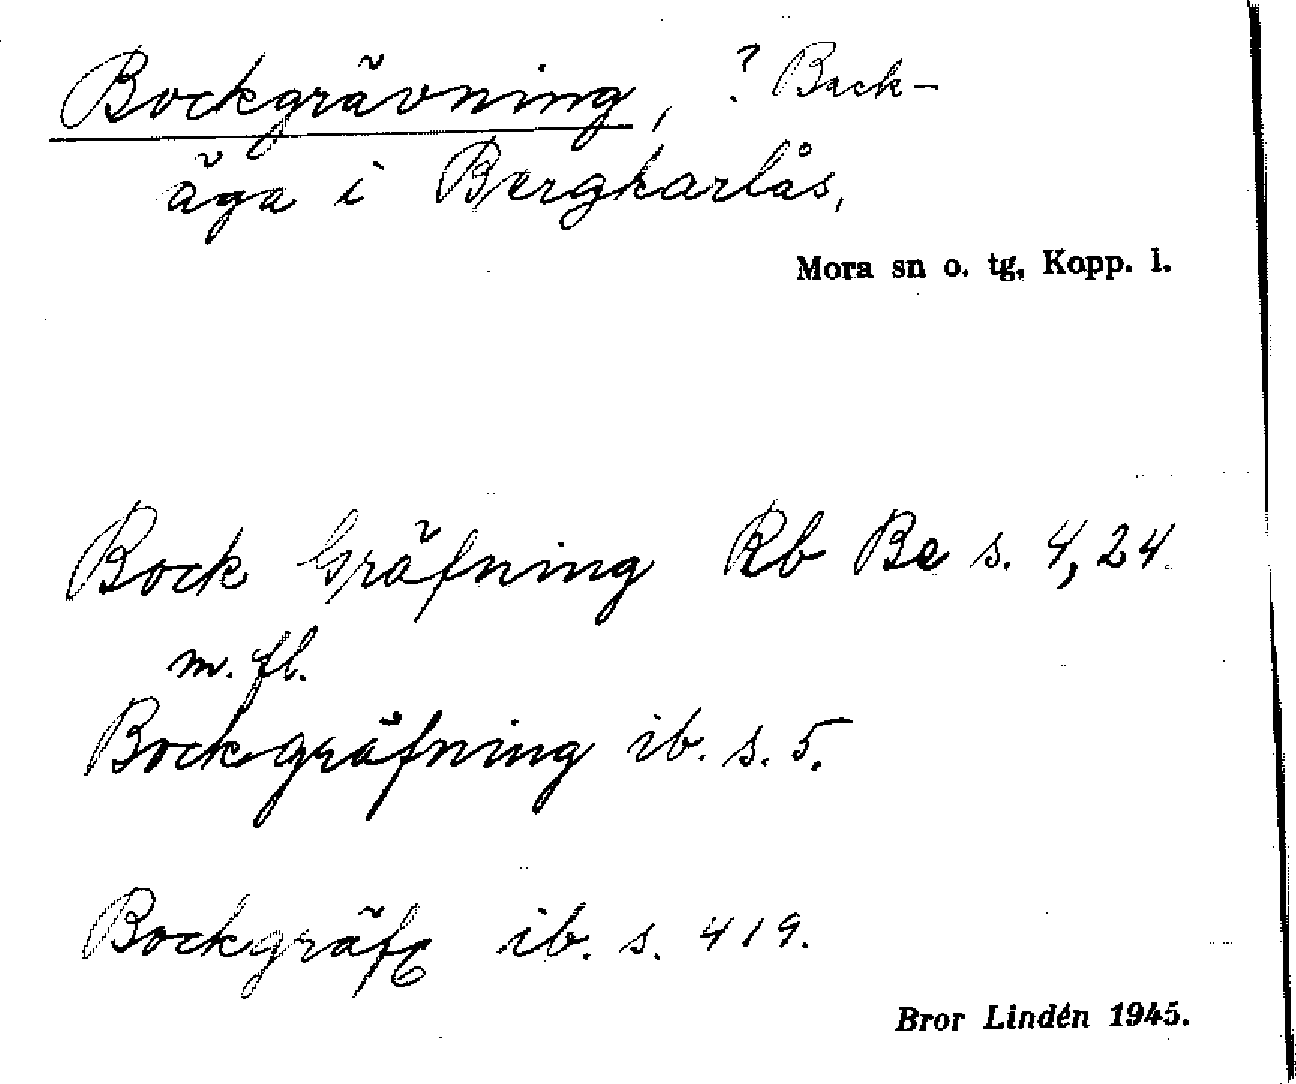 Bockgrävning, ? Back-
äga i Bergkarlås,
Mora sn o. tg, Kopp. l.
Bock Gräfning Rb Be s. 4, 24
m. fl.
Bockgräfning ib. s. 5.
Bockgräfg ib. s. 419.
Bror Lindén 1945.